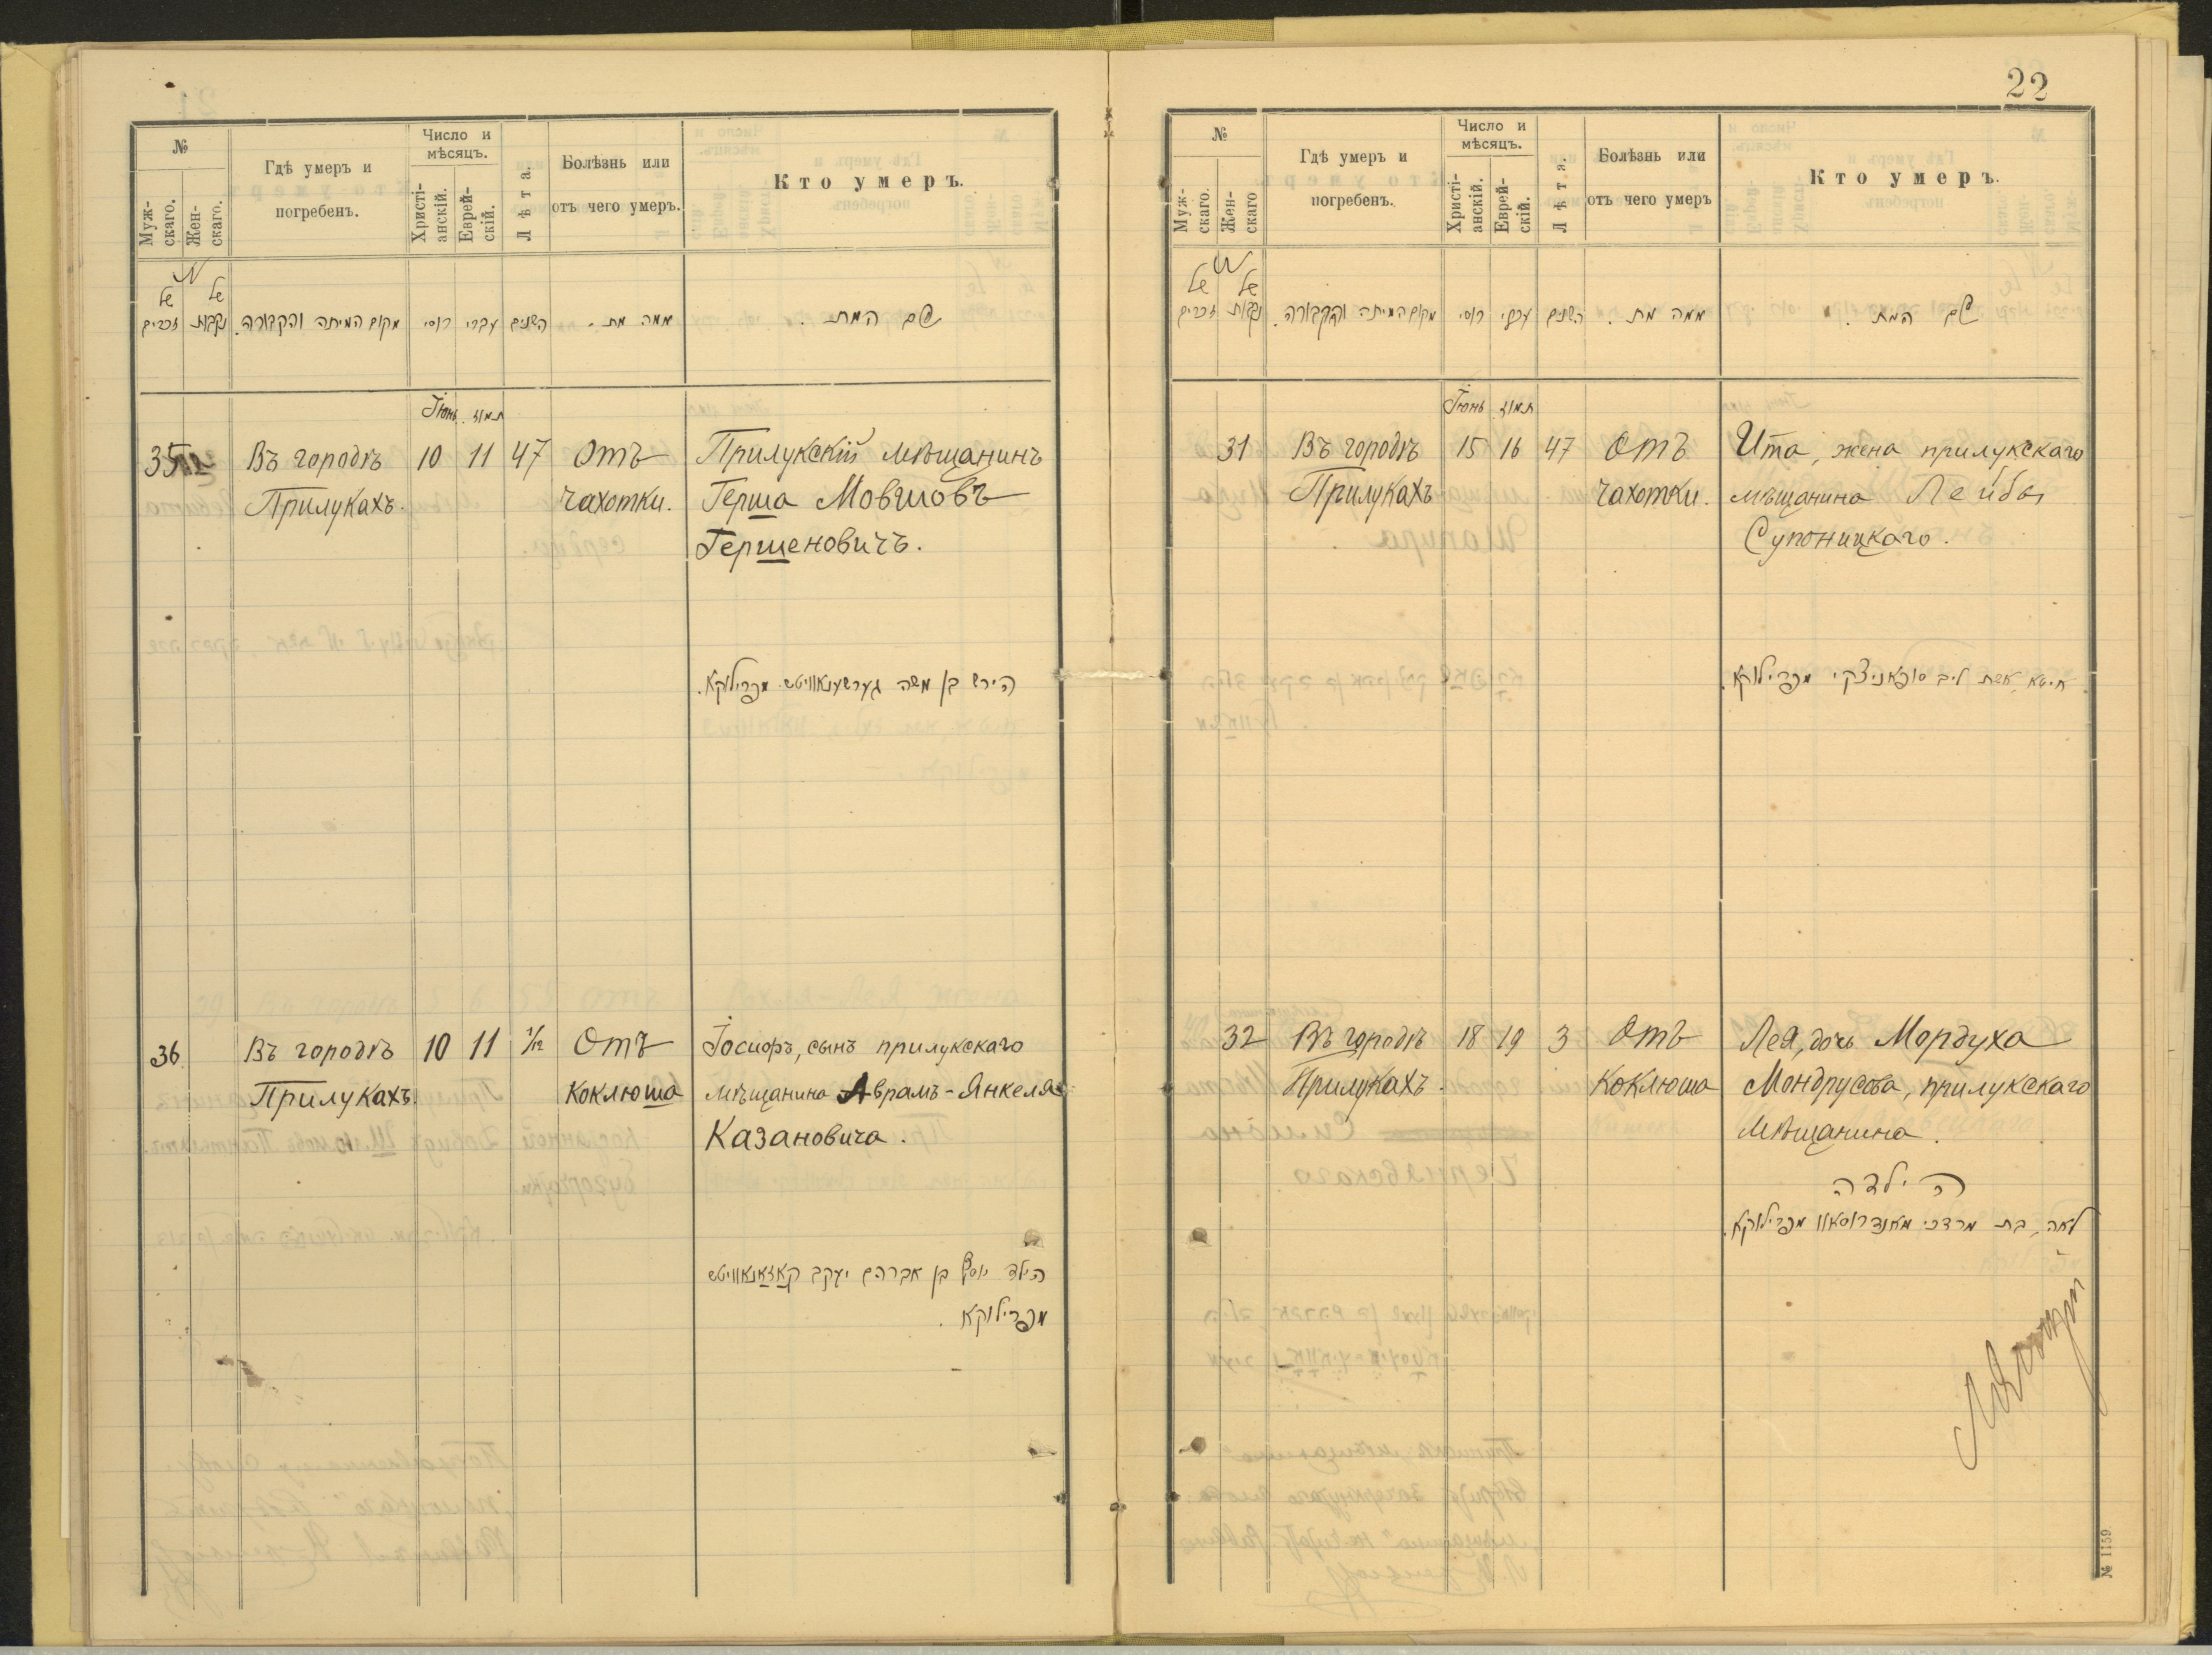 №
Муж-
скаго.
Жен-
скаго.
Гдѣ умеръ и
погребенъ.
Число и
мѣсяцъ.
Христі-
анскій.
Еврей-
скій.
Лѣта.
Болѣзнь или
отъ чего умеръ.
Кто умеръ.
של זכרים
של נקבות
מקום המיתה והקבורה.
רוסי
עברי
השנים
ממה מת.
שם המת.
Іюнь תמוז
35 Въ городѣ 10 11 47 Отъ Прилукскій мѣщанинъ
Прилукахъ. чахотки. Герша Мовшовъ
Гершеновичъ.
הירש בן משה גערשענאוויטש מפרילוקא.
36 Въ городѣ 10 11 1/12 Отъ Іосифъ, сынъ прилукскаго
Прилукахъ. коклюша мѣщанина Аврамъ-Янкеля
Казановича.
הילד יוסף בן אברהם יעקב קאזאנאוויטש
מפרילוקא.
22
№
Муж-
скаго.
Жен-
скаго
Гдѣ умеръ и
погребенъ.
Число и
мѣсяцъ.
Христі-
анскій.
Еврей-
скій.
Лѣта.
Болѣзнь или
отъ чего умеръ
Кто умеръ.
של זכרים
של נקבות
מקום המיתה והקבורה.
רוסי
עברי
השנים
ממה מת.
שם המת.
Іюнь תמוז
31 Въ городѣ 15 16 47 Отъ Ита, жена прилукскаго
Прилукахъ чахотки. мѣщанина Лейбы
Супоницкаго.
איטא, אשת ליב סופאניצקי מפרילוקא.
32 Въ городѣ 18 19 3 Отъ Лея, дочь Мордуха
Прилукахъ. коклюша Мондрусова, прилукскаго
мѣщанина.
הילדה
לאה, בת מרדכי מאנדרוסאוו מפרילוקא.
№ 1159